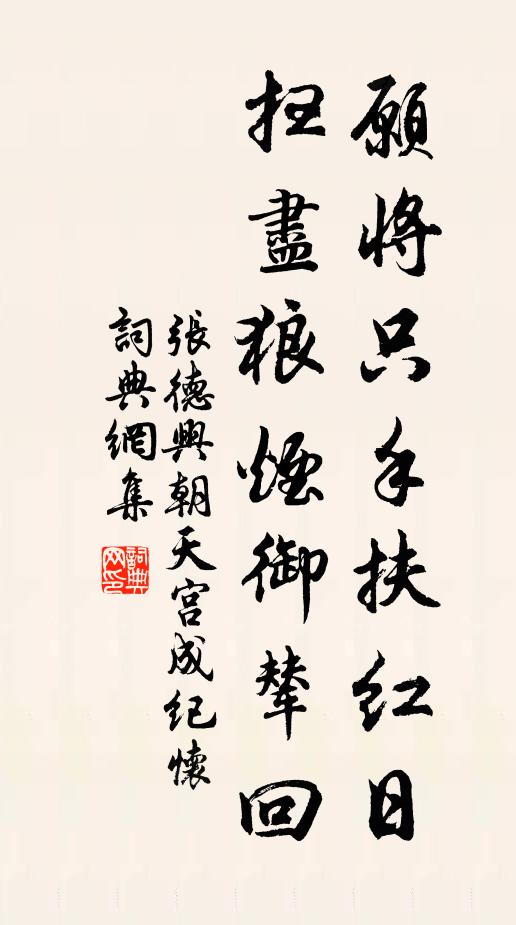 願將只手扶紅日
掃盡狼煙御輦回
張德興朝天宮成紀懷
詞典網集
詞典網印